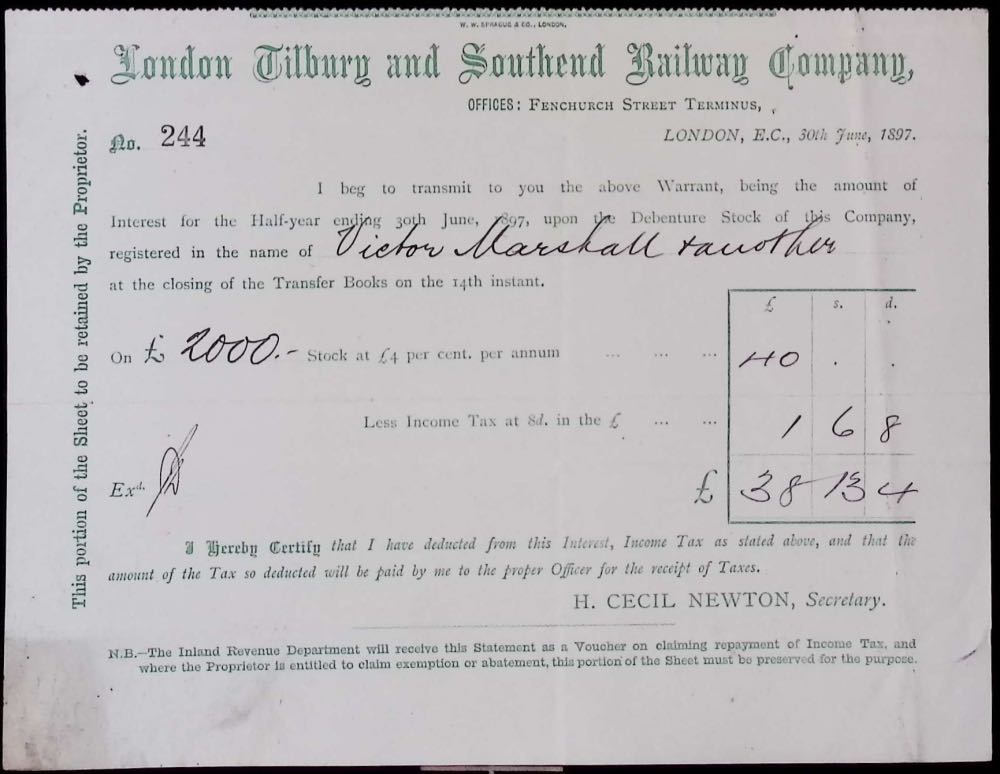 W. W. SPRAGUE & CO., LONDON.
London Tilbury and Southend Railway Company,
OFFICES: FENCHURCH STREET TERMINUS,
No. 244
LONDON, E.C., 30th June, 1897.
I beg to transmit to you the above Warrant, being the amount of
Interest for the Half-year ending 30th June, 1897, upon the Debenture Stock of this Company,
registered in the name of Victor Marshall & another
at the closing of the Transfer Books on the 14th instant.
£ s. d.
On £ 2000.- Stock at £4 per cent. per annum ... ... ... 40 . .
Less Income Tax at 8d. in the £ ... ... 1 6 8
Exd.
£ 38 13 4
I Hereby Certify that I have deducted from this Interest, Income Tax as stated above, and that the
amount of the Tax so deducted will be paid by me to the proper Officer for the receipt of Taxes.
H. CECIL NEWTON, Secretary.
N.B.—The Inland Revenue Department will receive this Statement as a Voucher on claiming repayment of Income Tax, and
where the Proprietor is entitled to claim exemption or abatement, this portion of the Sheet must be preserved for the purpose.
This portion of the Sheet to be retained by the Proprietor.